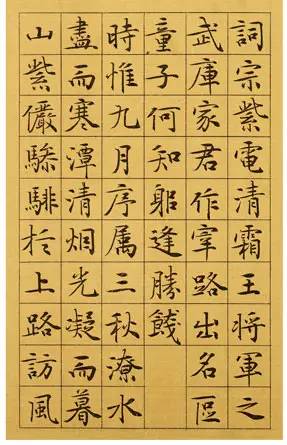 詞宗紫電清霜王將軍之
武庫家君作宰路出名區
童子何知躬逢勝餞
時惟九月序属三秋潦水
盡而寒潭清烟光凝而暮
山紫儼驂騑扵上路訪風